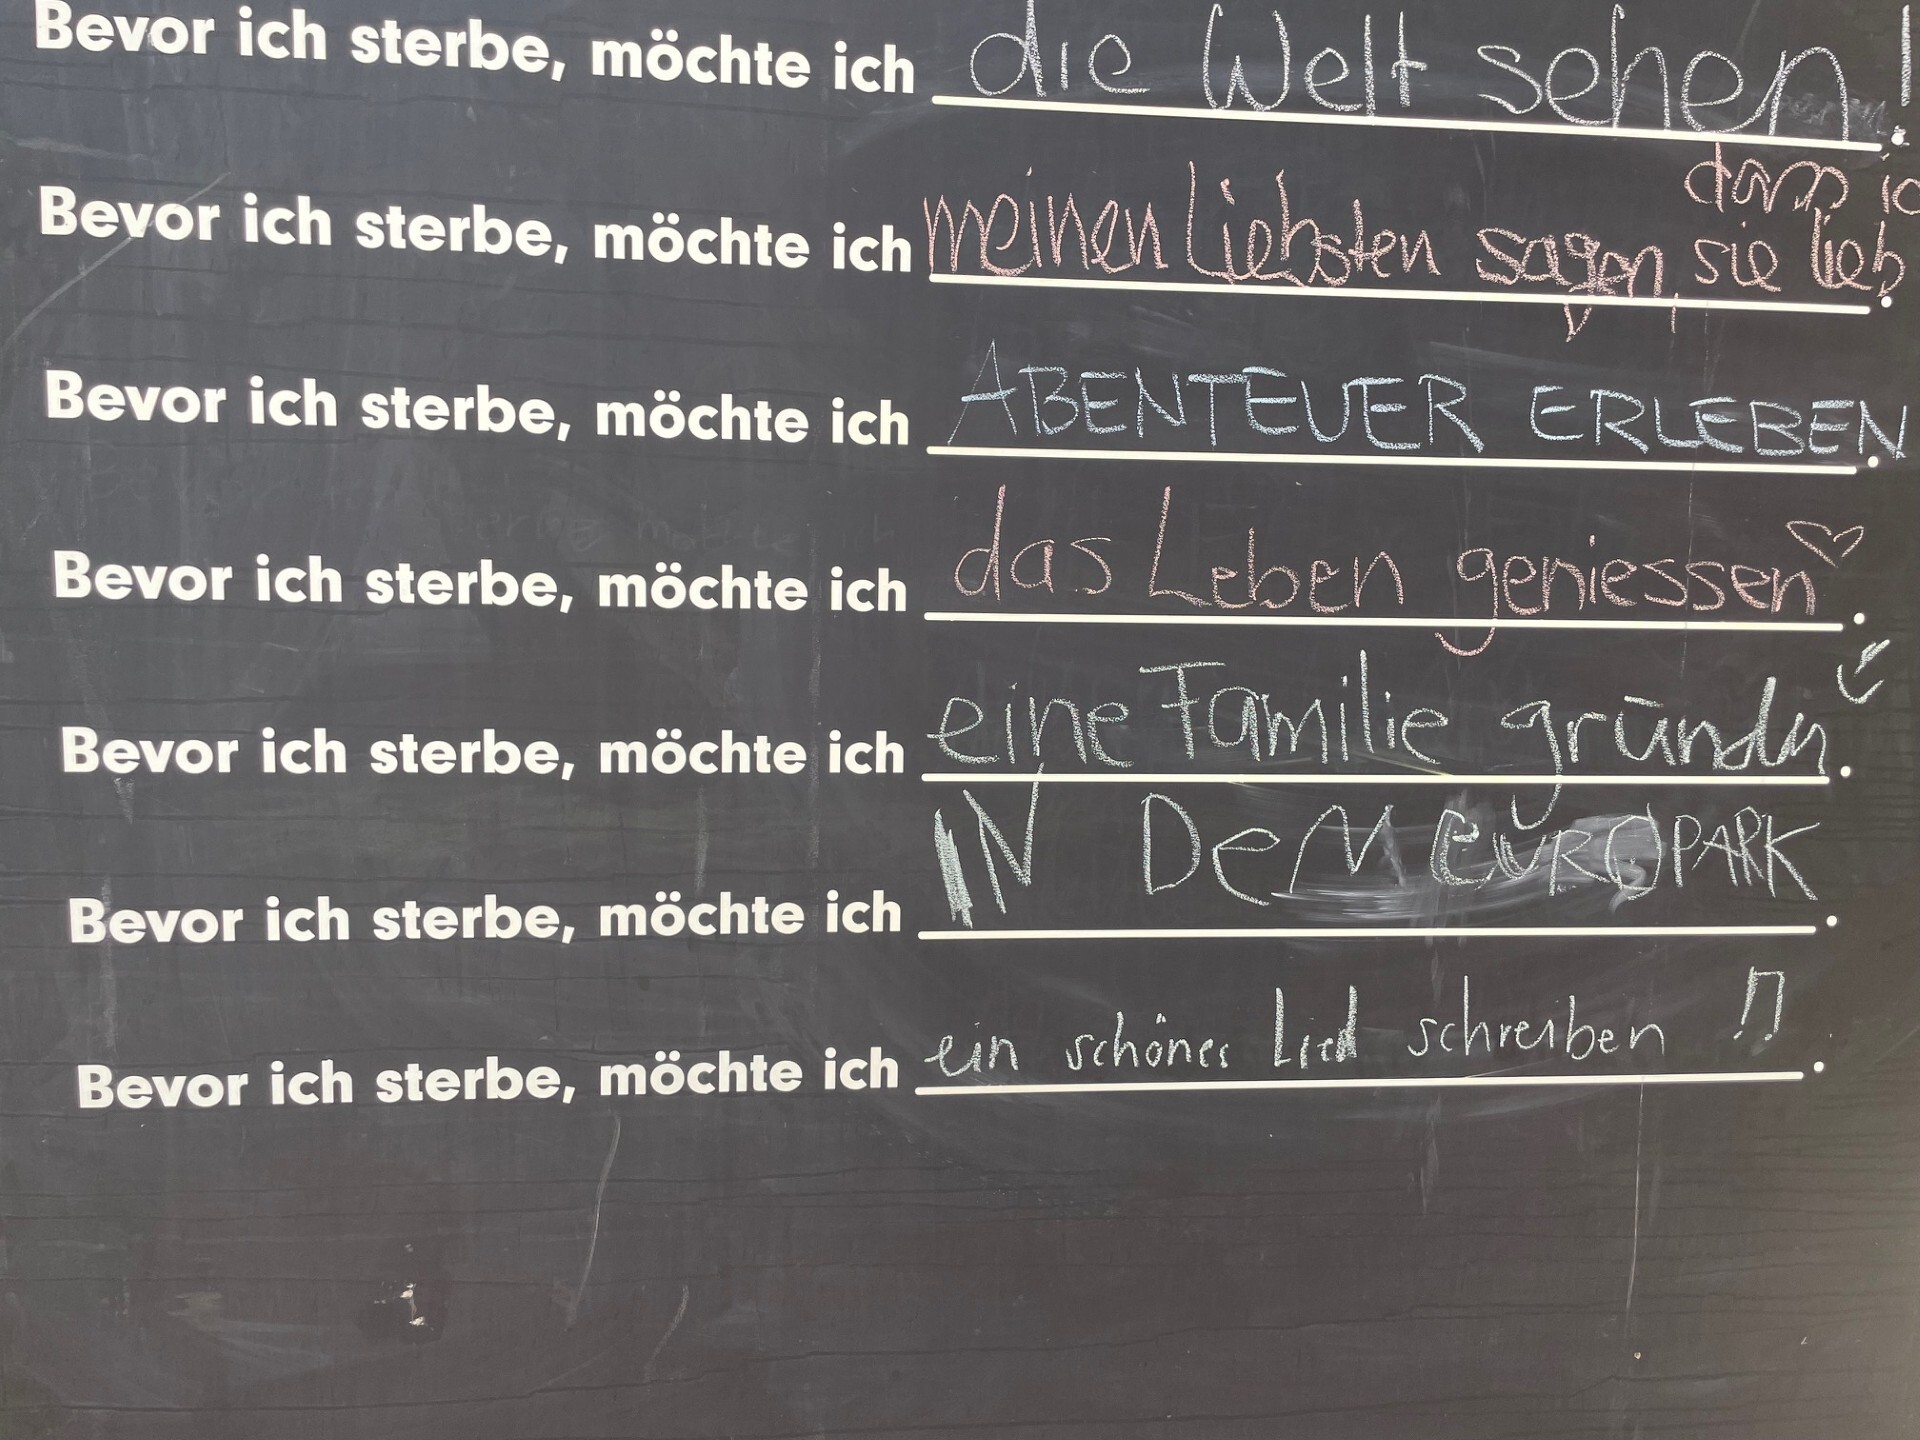 Bevor ich sterbe, möchte ich die Welt sehen!
dass ic
Bevor ich sterbe, möchte ich meinen Liebsten sagen, sie lieb
Bevor ich sterbe, möchte ich ABENTEUER ERLEBEN.
Bevor ich sterbe, möchte ich das Leben geniessen.
Bevor ich sterbe, möchte ich eine Familie gründen.
Bevor ich sterbe, möchte ich IN DeM euROPARK.
Bevor ich sterbe, möchte ich ein schönes Lied schreiben.